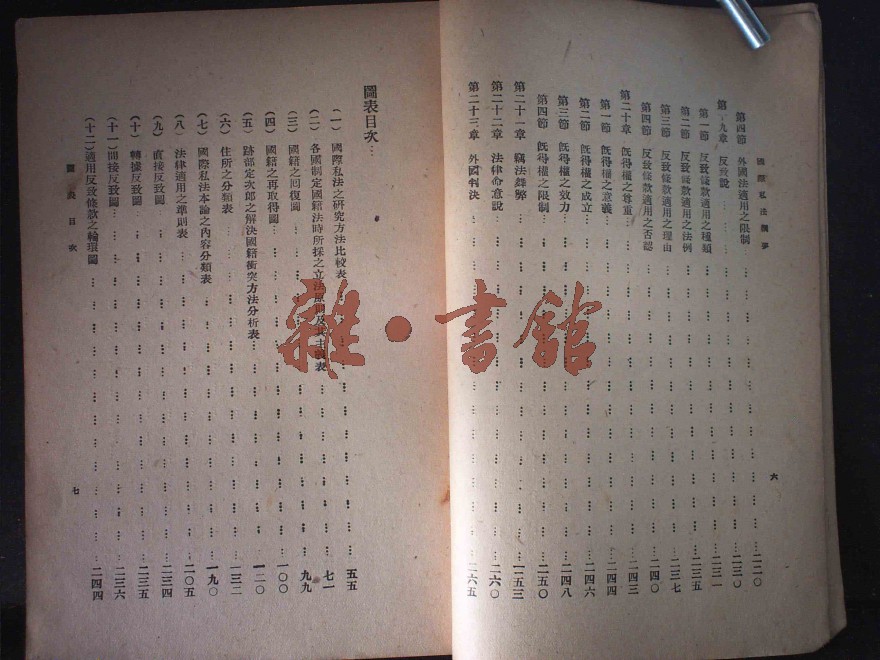 國際私法綱要
第四節 外國法適用之限制……二二〇
第十九章 反致說……二三〇
第一節 反致條款適用之種類……二三一
第二節 反致條款適用之法例……二三五
第三節 反致條款適用之理由……二三七
第四節 反致條款適用之否認……二四〇
第二十章 既得權之尊重……二四三
第一節 既得權之意義……二四四
第二節 既得權之成立……二四六
第三節 既得權之效力……二四八
第四節 既得權之限制……二五〇
第二十一章 竊法舞弊……二五三
第二十二章 法律命意說……二六〇
第二十三章 外國判決……二六五
六
圖表目次…
(一) 國際私法之研究方法比較表……五五
(二) 各國制定國籍法時所採之立法原則及其主義表……七一
(三) 國籍之回復圖……九九
(四) 國籍之再取得圖……一〇〇
(五) 跡部定次郎之解決國籍衝突方法分析表……一二〇
(六) 住所之分類表……一三二
(七) 國際私法本論之內容分類表……一九〇
(八) 法律適用之準則表……二〇五
(九) 直接反致圖……二三四
(十) 轉據反致圖……二三五
(十一) 間接反致圖……二三六
(十二) 適用反致條款之輪環圖……二四四
圖表目次
七
雜·書館